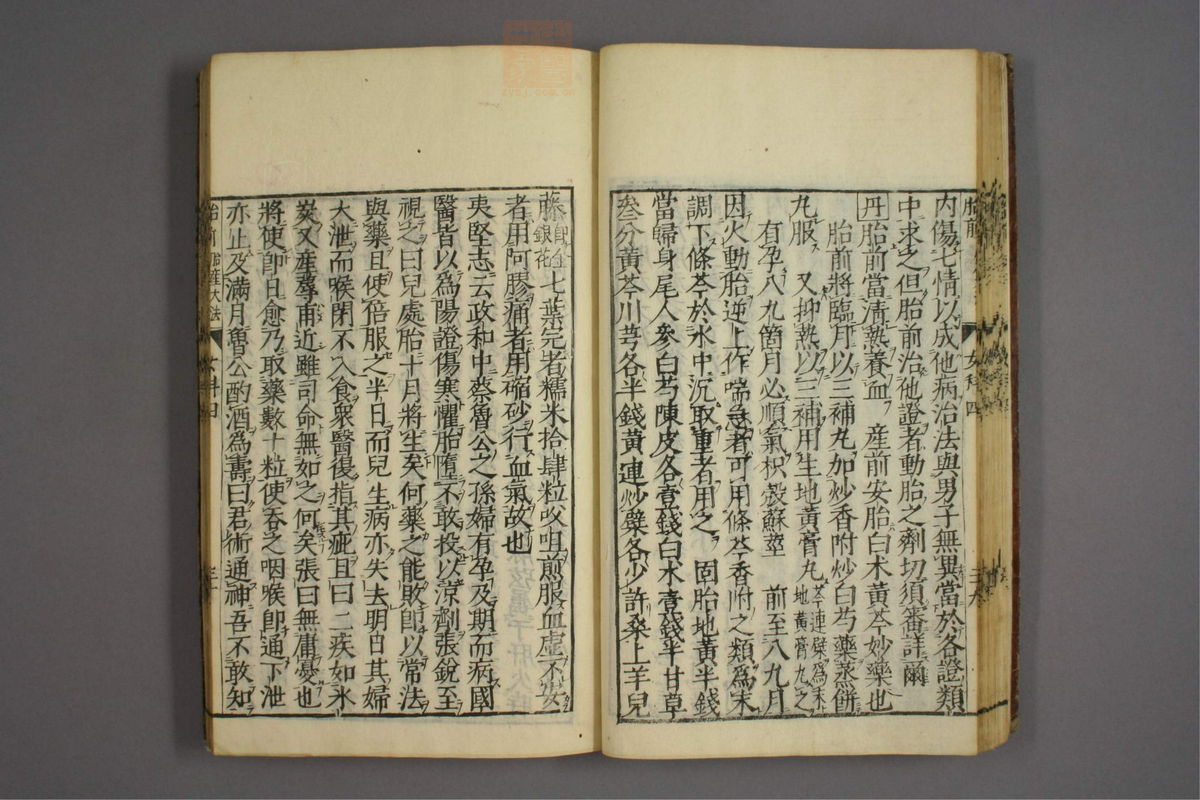 內傷七情以成他病治法與男子無異當於各證類
中求之但胎前治他證者動胎之劑切須審詳爾
丹 胎前當清熱養血 産前安胎白朮黃芩妙藥也
胎前將臨月以三補丸加炒香附炒白芍藥蒸餅
丸服 又抑熱以三補用生地黃膏丸 芩連蘗爲末地黃膏丸之
有孕八九箇月必順氣枳殼蘇莖 前至八九月
因火動胎逆上作喘急者可用條芩香附之類爲末
調下條芩於水中沉取重者用之 固胎地黃半錢
當歸身尾人參白芍陳皮各壹錢白朮壹錢半甘草
叁分黃芩川芎各半錢黃連炒蘗各少許桑上羊兒
藤 銀花 七葉完者糯米拾肆粒㕮咀煎服血虛不安
者用阿膠痛者用縮砂行血氣故也
夷堅志云政和中蔡魯公之孫婦有孕及期而病國
醫皆以爲陽證傷寒懼胎墮不敢投以涼劑張銳至
視之曰兒處胎十月將生矣何藥之能敗卽以常法
與藥且使倍服之半日而兒生病亦失去明日其婦
大泄而喉閉不入食衆醫復指其疵且曰二疾如氷
炭又産蓐甫近雖司命無如之何矣張曰無庸憂也
將使卽日愈乃取藥數十粒使吞之咽喉卽通下泄
亦止及滿月魯公酌酒爲壽曰君術通神吾不敢知
胎前
女科四
女科四